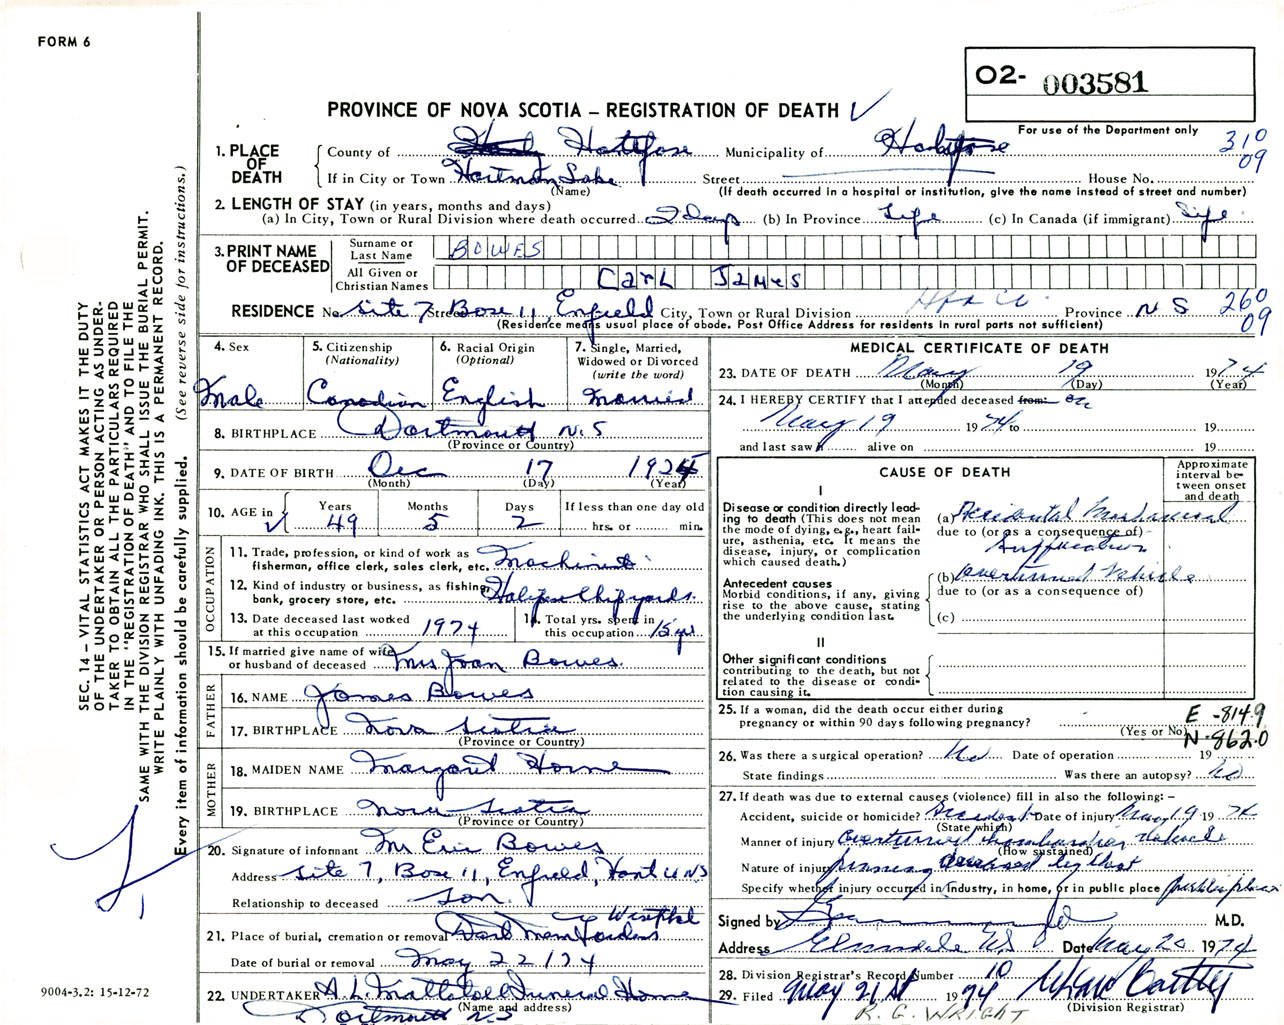 FORM 6
O2- 003581
For use of the Department only
PROVINCE OF NOVA SCOTIA – REGISTRATION OF DEATH
310
09
1. PLACE OF DEATH
County of Halifax Municipality of Halifax
If in City or Town Lake Street House No.
(Name) (If death occurred in a hospital or institution, give the name instead of street and number)
2. LENGTH OF STAY (in years, months and days)
(a) In City, Town or Rural Division where death occurred 2 days (b) In Province Life (c) In Canada (if immigrant) Life
3. PRINT NAME OF DECEASED
Surname or Last Name BOWES
All Given or Christian Names CARL JAMES
RESIDENCE No. Site 7 Street Box 11, Enfield City, Town or Rural Division Province N S
260
09
(Residence means usual place of abode. Post Office Address for residents in rural parts not sufficient)
4. Sex
Male
5. Citizenship
(Nationality)
Canadian
6. Racial Origin
(Optional)
English
7. Single, Married,
Widowed or Divorced
(write the word)
Married
8. BIRTHPLACE Dartmouth N.S
(Province or Country)
9. DATE OF BIRTH Dec 17 1924
(Month) (Day) (Year)
10. AGE in
Years 49
Months 5
Days 2
If less than one day old
hrs. or min.
OCCUPATION
11. Trade, profession, or kind of work as
fisherman, office clerk, sales clerk, etc. Machinist
12. Kind of industry or business, as fishing,
bank, grocery store, etc. Halifax Shipyards
13. Date deceased last worked
at this occupation 1974
14. Total yrs. spent in
this occupation 15 yr
15. If married give name of wife
or husband of deceased Mrs Joan Bowes
FATHER
16. NAME James Bowes
17. BIRTHPLACE Nova Scotia
(Province or Country)
MOTHER
18. MAIDEN NAME Margaret Horne
19. BIRTHPLACE Nova Scotia
(Province or Country)
20. Signature of informant Mr Eric Bowes
Address Site 7, Box 11, Enfield, Hants Co NS
Relationship to deceased Son
21. Place of burial, cremation or removal Dart Mem Gardens Westphal
Date of burial or removal May 22/74
22. UNDERTAKER A.L. Mattatall Funeral Home
(Name and address)
Dartmouth N.S
MEDICAL CERTIFICATE OF DEATH
23. DATE OF DEATH May 19 1974
(Month) (Day) (Year)
24. I HEREBY CERTIFY that I attended deceased from: on
May 19 1974 to 19
and last saw h alive on 19
CAUSE OF DEATH
Approximate
interval be-
tween onset
and death
I
Disease or condition directly lead-
ing to death (This does not mean
the mode of dying, e.g., heart fail-
ure, asthenia, etc. It means the
disease, injury, or complication
which caused death.)
(a) Accidental Mechanical
due to (or as a consequence of)
Suffocation
Antecedent causes
Morbid conditions, if any, giving
rise to the above cause, stating
the underlying condition last.
(b) Overturned Vehicle
due to (or as a consequence of)
(c)
II
Other significant conditions
contributing to the death, but not
related to the disease or condi-
tion causing it.
25. If a woman, did the death occur either during
pregnancy or within 90 days following pregnancy?
(Yes or No)
E -814.9
N-862.0
26. Was there a surgical operation? No Date of operation 19
State findings Was there an autopsy? No
27. If death was due to external causes (violence) fill in also the following: –
Accident, suicide or homicide? Accident Date of injury May 19 1974
(State which)
Manner of injury Overturned vehicle
(How sustained)
Nature of injury pinning deceased by chest
Specify whether injury occurred in Industry, in home, or in public place public place
Signed by M.D.
Address Elmsdale N.S Date May 20 1974
28. Division Registrar's Record Number 10
29. Filed May 21st 1974
(Division Registrar)
R. G. WRIGHT
SEC. 14 – VITAL STATISTICS ACT MAKES IT THE DUTY
OF THE UNDERTAKER OR PERSON ACTING AS UNDER-
TAKER TO OBTAIN ALL THE PARTICULARS REQUIRED
IN THE "REGISTRATION OF DEATH" AND TO FILE THE
SAME WITH THE DIVISION REGISTRAR WHO SHALL ISSUE THE BURIAL PERMIT.
WRITE PLAINLY WITH UNFADING INK. THIS IS A PERMANENT RECORD.
Every item of information should be carefully supplied. (See reverse side for instructions.)
9004-3.2: 15-12-72